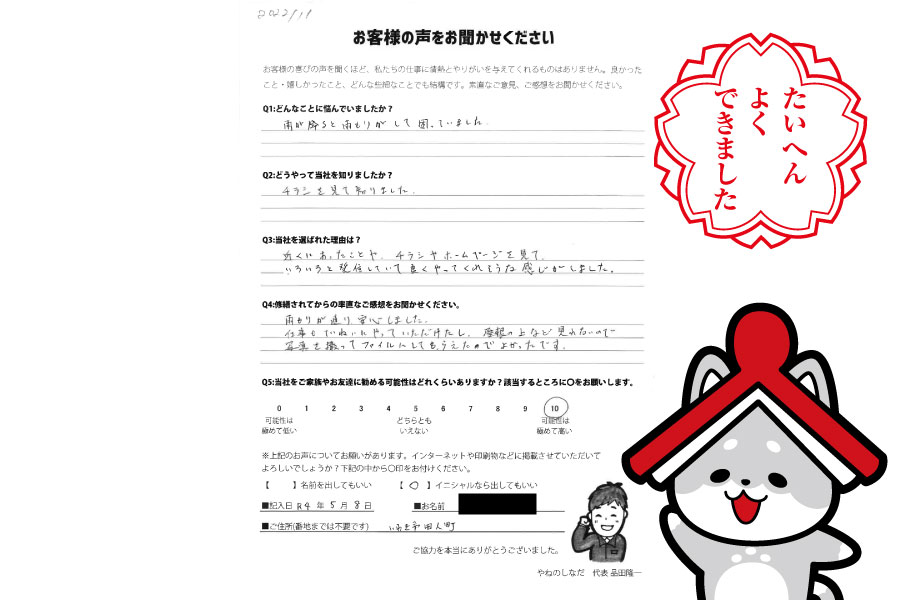 2022/11
お客様の声をお聞かせください
お客様の喜びの声を聞くほど、私たちの仕事に情熱とやりがいを与えてくれるものはありません。良かった
こと・嬉しかったこと、どんな些細なことでも結構です。素直なご意見、ご感想をお聞かせください。
Q1:どんなことに悩んでいましたか？
雨が降ると雨もりがして困っていました。
Q2:どうやって当社を知りましたか？
チラシを見て知りました。
Q3:当社を選ばれた理由は？
近くにあったことや、チラシやホームページを見て、
いろいろと発信していて良くやってくれそうな感じがしました。
Q4:修繕されてからの率直なご感想をお聞かせください。
雨もりが直り安心しました。
仕事もていねいにやっていただけたし、屋根の上など見れないので
写真を撮ってファイルにしてもらえたのでよかったです。
Q5:当社をご家族やお友達に勧める可能性はどれくらいありますか？該当するところに〇をお願いします。
0 1 2 3 4 5 6 7 8 9 10
可能性は極めて低い どちらともいえない 可能性は極めて高い
※上記のお声についてお願いがあります。インターネットや印刷物などに掲載させていただいて
よろしいでしょうか？下記の中から〇印をお付けください。
【 】名前を出してもいい 【 〇 】イニシャルなら出してもいい
■記入日 R4 年 5 月 8 日 ■お名前
■ご住所(番地までは不要です) いわき市田人町
ご協力を本当にありがとうございました。
やねのしなだ 代表 品田隆一
たいへん
よく
できました